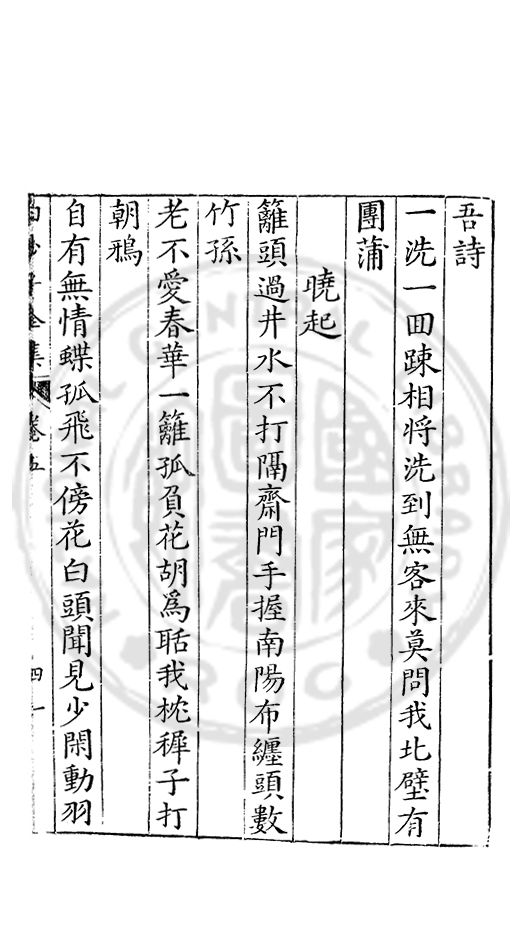 吾詩
一洗一回踈相將洗到無客來莫問我北壁有
團蒲
曉起
籬頭過井水不打隔齋門手握南陽布纏頭數
竹孫
老不愛春華一籬孤負花胡為聒我枕穉子打
朝鴉
自有無情蝶孤飛不傍花白頭聞見少閑動羽
白沙子全集 卷五 四一